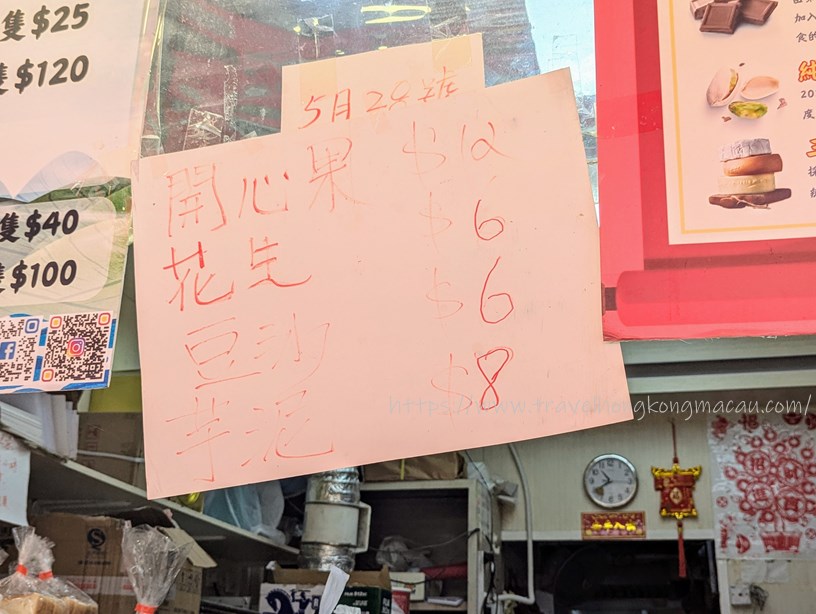 隻$25
隻$120
隻$40
隻$100
5月28號
開心果 $12
花生 $6
豆沙 $6
芋泥 $8
加入
食的
純
20
度
https://www.travelhongkongmacau.com/